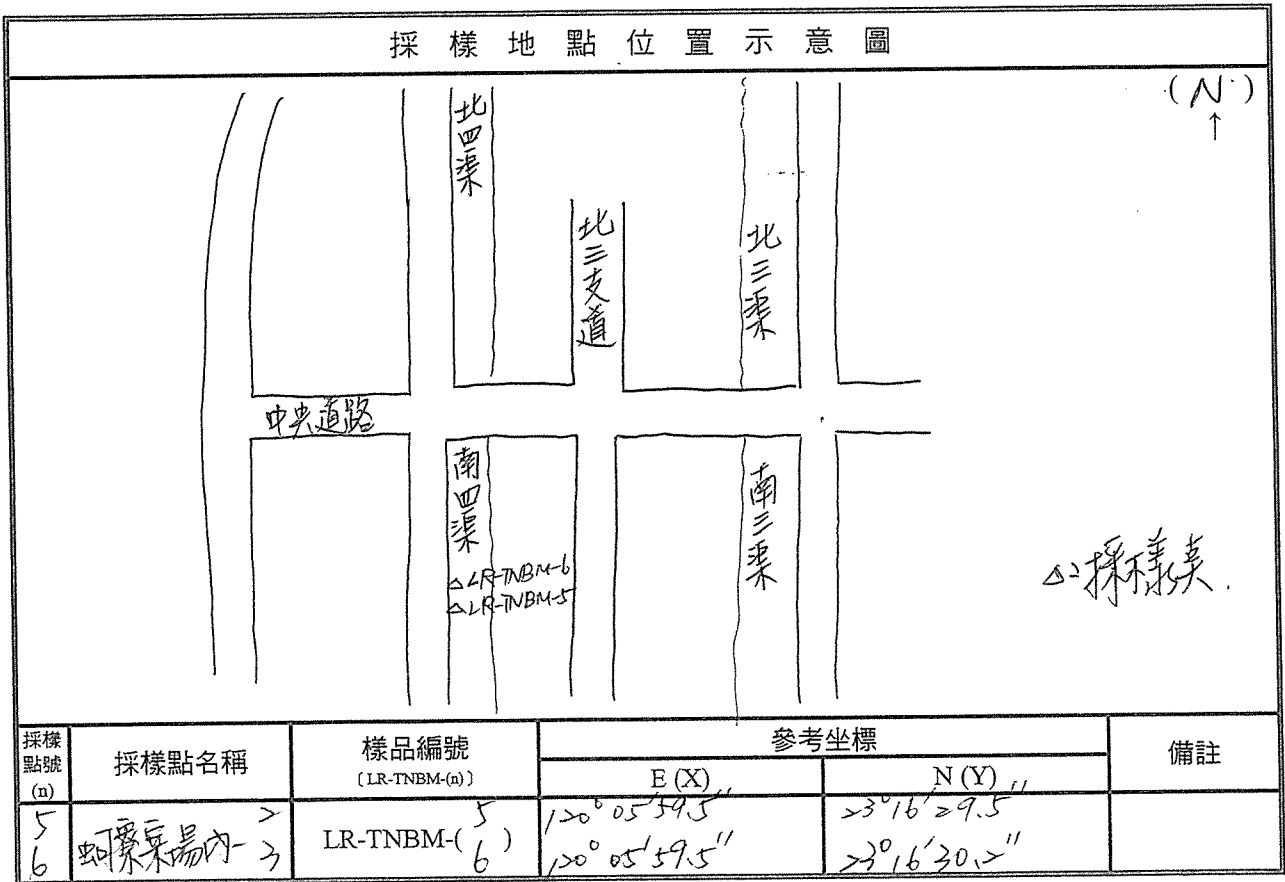 採樣地點位置示意圖
(N)
↑
北四渠
北三支道
北三渠
中央道路
南四渠
南三渠
△LR-TNBM-6
△LR-TNBM-5
△:採樣點.
採樣點號(n)
採樣點名稱
樣品編號
〔LR-TNBM-(n)〕
參考坐標
E (X)
N (Y)
備註
5
6
蚵寮棄場內-2
3
LR-TNBM-(5
6)
120°05'59.5"
23°16'29.5"
120°05'59.5"
23°16'30.2"